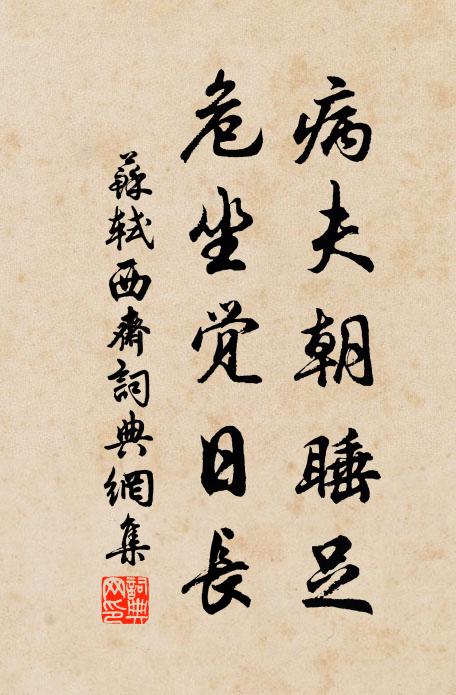 病夫朝睡足
危坐觉日長
蘇軾西齋詞典網集
詞典網印